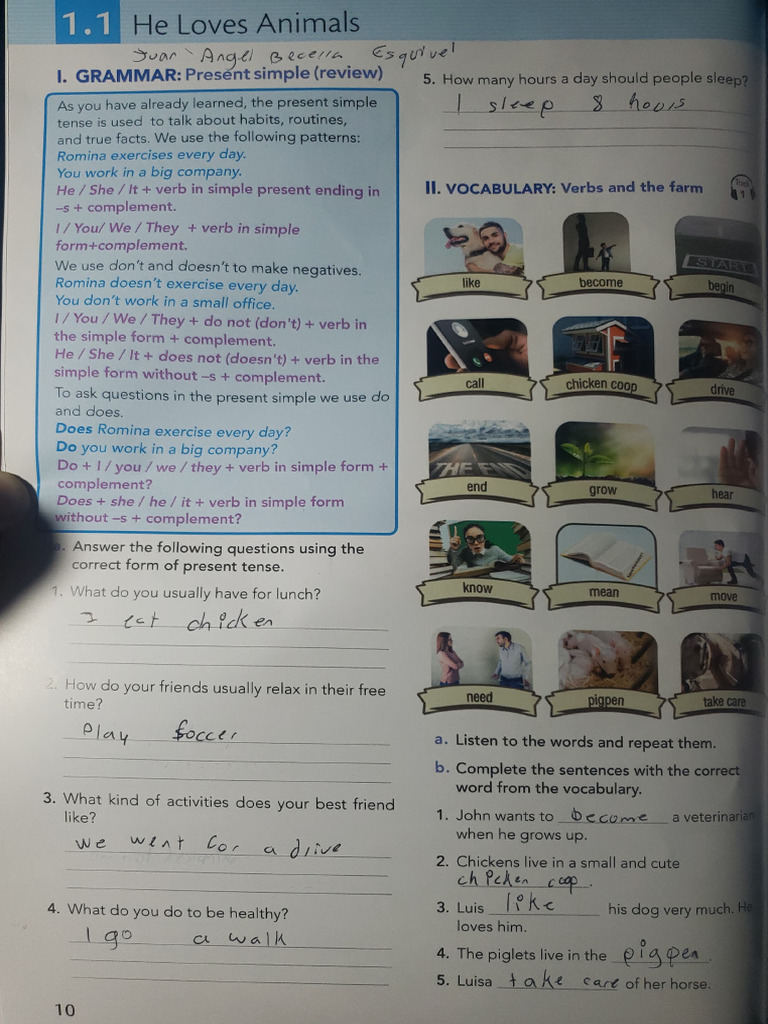 1.1 He Loves Animals
Juan Angel Becerra Esquivel
I. GRAMMAR: Present simple (review)
As you have already learned, the present simple
tense is used to talk about habits, routines,
and true facts. We use the following patterns:
Romina exercises every day.
You work in a big company.
He / She / It + verb in simple present ending in
–s + complement.
I / You/ We / They + verb in simple
form+complement.
We use don't and doesn't to make negatives.
Romina doesn't exercise every day.
You don't work in a small office.
I / You / We / They + do not (don't) + verb in
the simple form + complement.
He / She / It + does not (doesn't) + verb in the
simple form without –s + complement.
To ask questions in the present simple we use do
and does.
Does Romina exercise every day?
Do you work in a big company?
Do + I / you / we / they + verb in simple form +
complement?
Does + she / he / it + verb in simple form
without –s + complement?
a. Answer the following questions using the
correct form of present tense.
1. What do you usually have for lunch?
I eat chicken
2. How do your friends usually relax in their free
time?
Play soccer
3. What kind of activities does your best friend
like?
we went for a drive
4. What do you do to be healthy?
I go a walk
10
5. How many hours a day should people sleep?
I sleep 8 hours
II. VOCABULARY: Verbs and the farm
Track
1
like
become
START
begin
call
chicken coop
drive
THE END
end
grow
hear
know
mean
move
need
pigpen
take care
a. Listen to the words and repeat them.
b. Complete the sentences with the correct
word from the vocabulary.
1. John wants to become a veterinarian
when he grows up.
2. Chickens live in a small and cute
chicken coop.
3. Luis like his dog very much. He
loves him.
4. The piglets live in the pigpen.
5. Luisa take care of her horse.